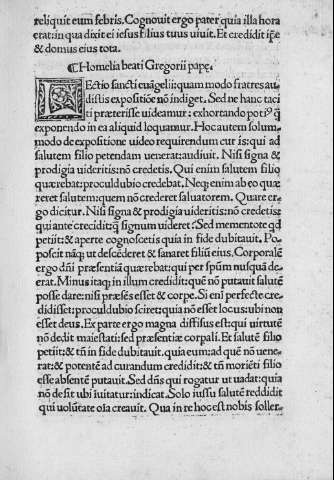 reliquit eum febris. Cognouit ergo pater quia illa hora
erat: in qua dixit ei iesus filius tuus uiuit. Et credidit ip̃e
& domus eius tota.
¶ Homelia beati Gregorii papȩ.
LEctio sancti euãgelii: quam modo fratres au⸗
distis expositiõe nõ indiget. Sed ne hanc taci
ti præterisse uideamur: exhortando poti⁹ q̃
exponendo in ea aliquid loquamur. Hoc autem solum⸗
modo de expositione uideo requirendum cur is: qui ad
salutem filio petendam uenerat: audiuit. Nisi signa &
prodigia uideritis: nõ credetis. Qui enim salutem filio
quærebat: proculdubio credebat. Neq; enim ab eo quæ
reret salutem: quem nõ crederet saluatorem. Quare er⸗
go dicitur. Nisi signa & prodigia uideritis: nõ credetis:
qui ante crediditq̃ signum uideret? Sed mementote qd
petiit: & aperte cognoscetis quia in fide dubitauit. Po⸗
poscit nãq; ut descẽderet & sanaret filiũ eius. Corporalẽ
ergo dñi præsentiã quærebat: qui per spũm nusquã de⸗
erat. Minus itaq; in illum credidit: quẽ nõ putauit salutẽ
posse dare: nisi præsẽs esset & corpe. Si eni perfecte cre⸗
didisset: proculdubio sciret: quia nõ esset locus: ubi non
esset deus. Ex parte ergo magna diffisus est: qui uirtutẽ
nõ dedit maiestati: sed præsentiæ corpali. Et salutẽ filio
petiit: & tñ in fide dubitauit. quia eum: ad quẽ nõ uene⸗
rat: & potentẽ ad curandum credidit: & tñ moriẽti filio
esse absentẽ putauit. Sed dñs qui rogatur ut uadat: quia
nõ desit ubi ĩuitatur: indicat. Solo iussu salutẽ reddidit
qui uolũtate oĩa creauit. Qua in re hoc est nobis soller⸗